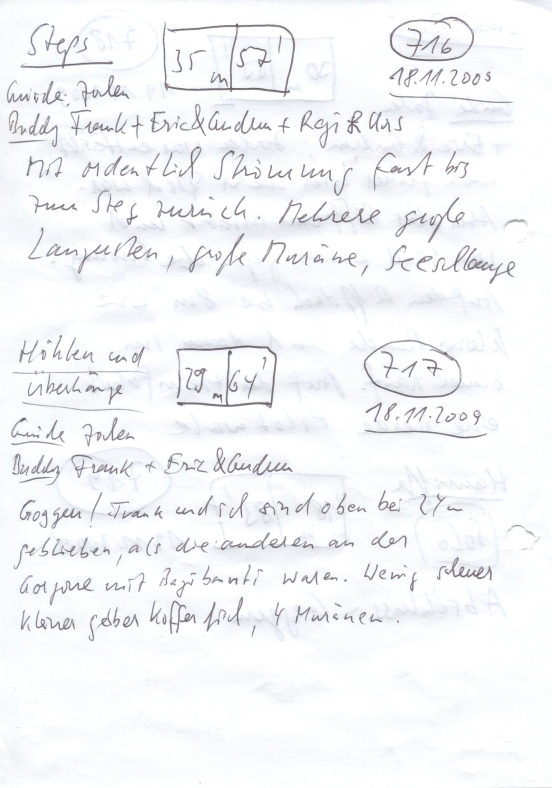 Steps 35 m 57' 716
18.11.2009
Guide: Joten
Buddy Frank + Eric & Gudrun + Regi & Urs
Mit ordentlich Strömung fast bis
zum Steg zurück. Mehrere große
Langusten, große Muräne, Seeschlange
Höhlen und 29 m 64' 717
Überhänge
18.11.2009
Guide
Buddy Frank + Eric & Gudrun
Frank und ich sind oben bei 24m
geblieben, als die anderen an der
Gorgonie mit waren. Wenig
kleiner gelber Kofferfisch, 4 Muränen.